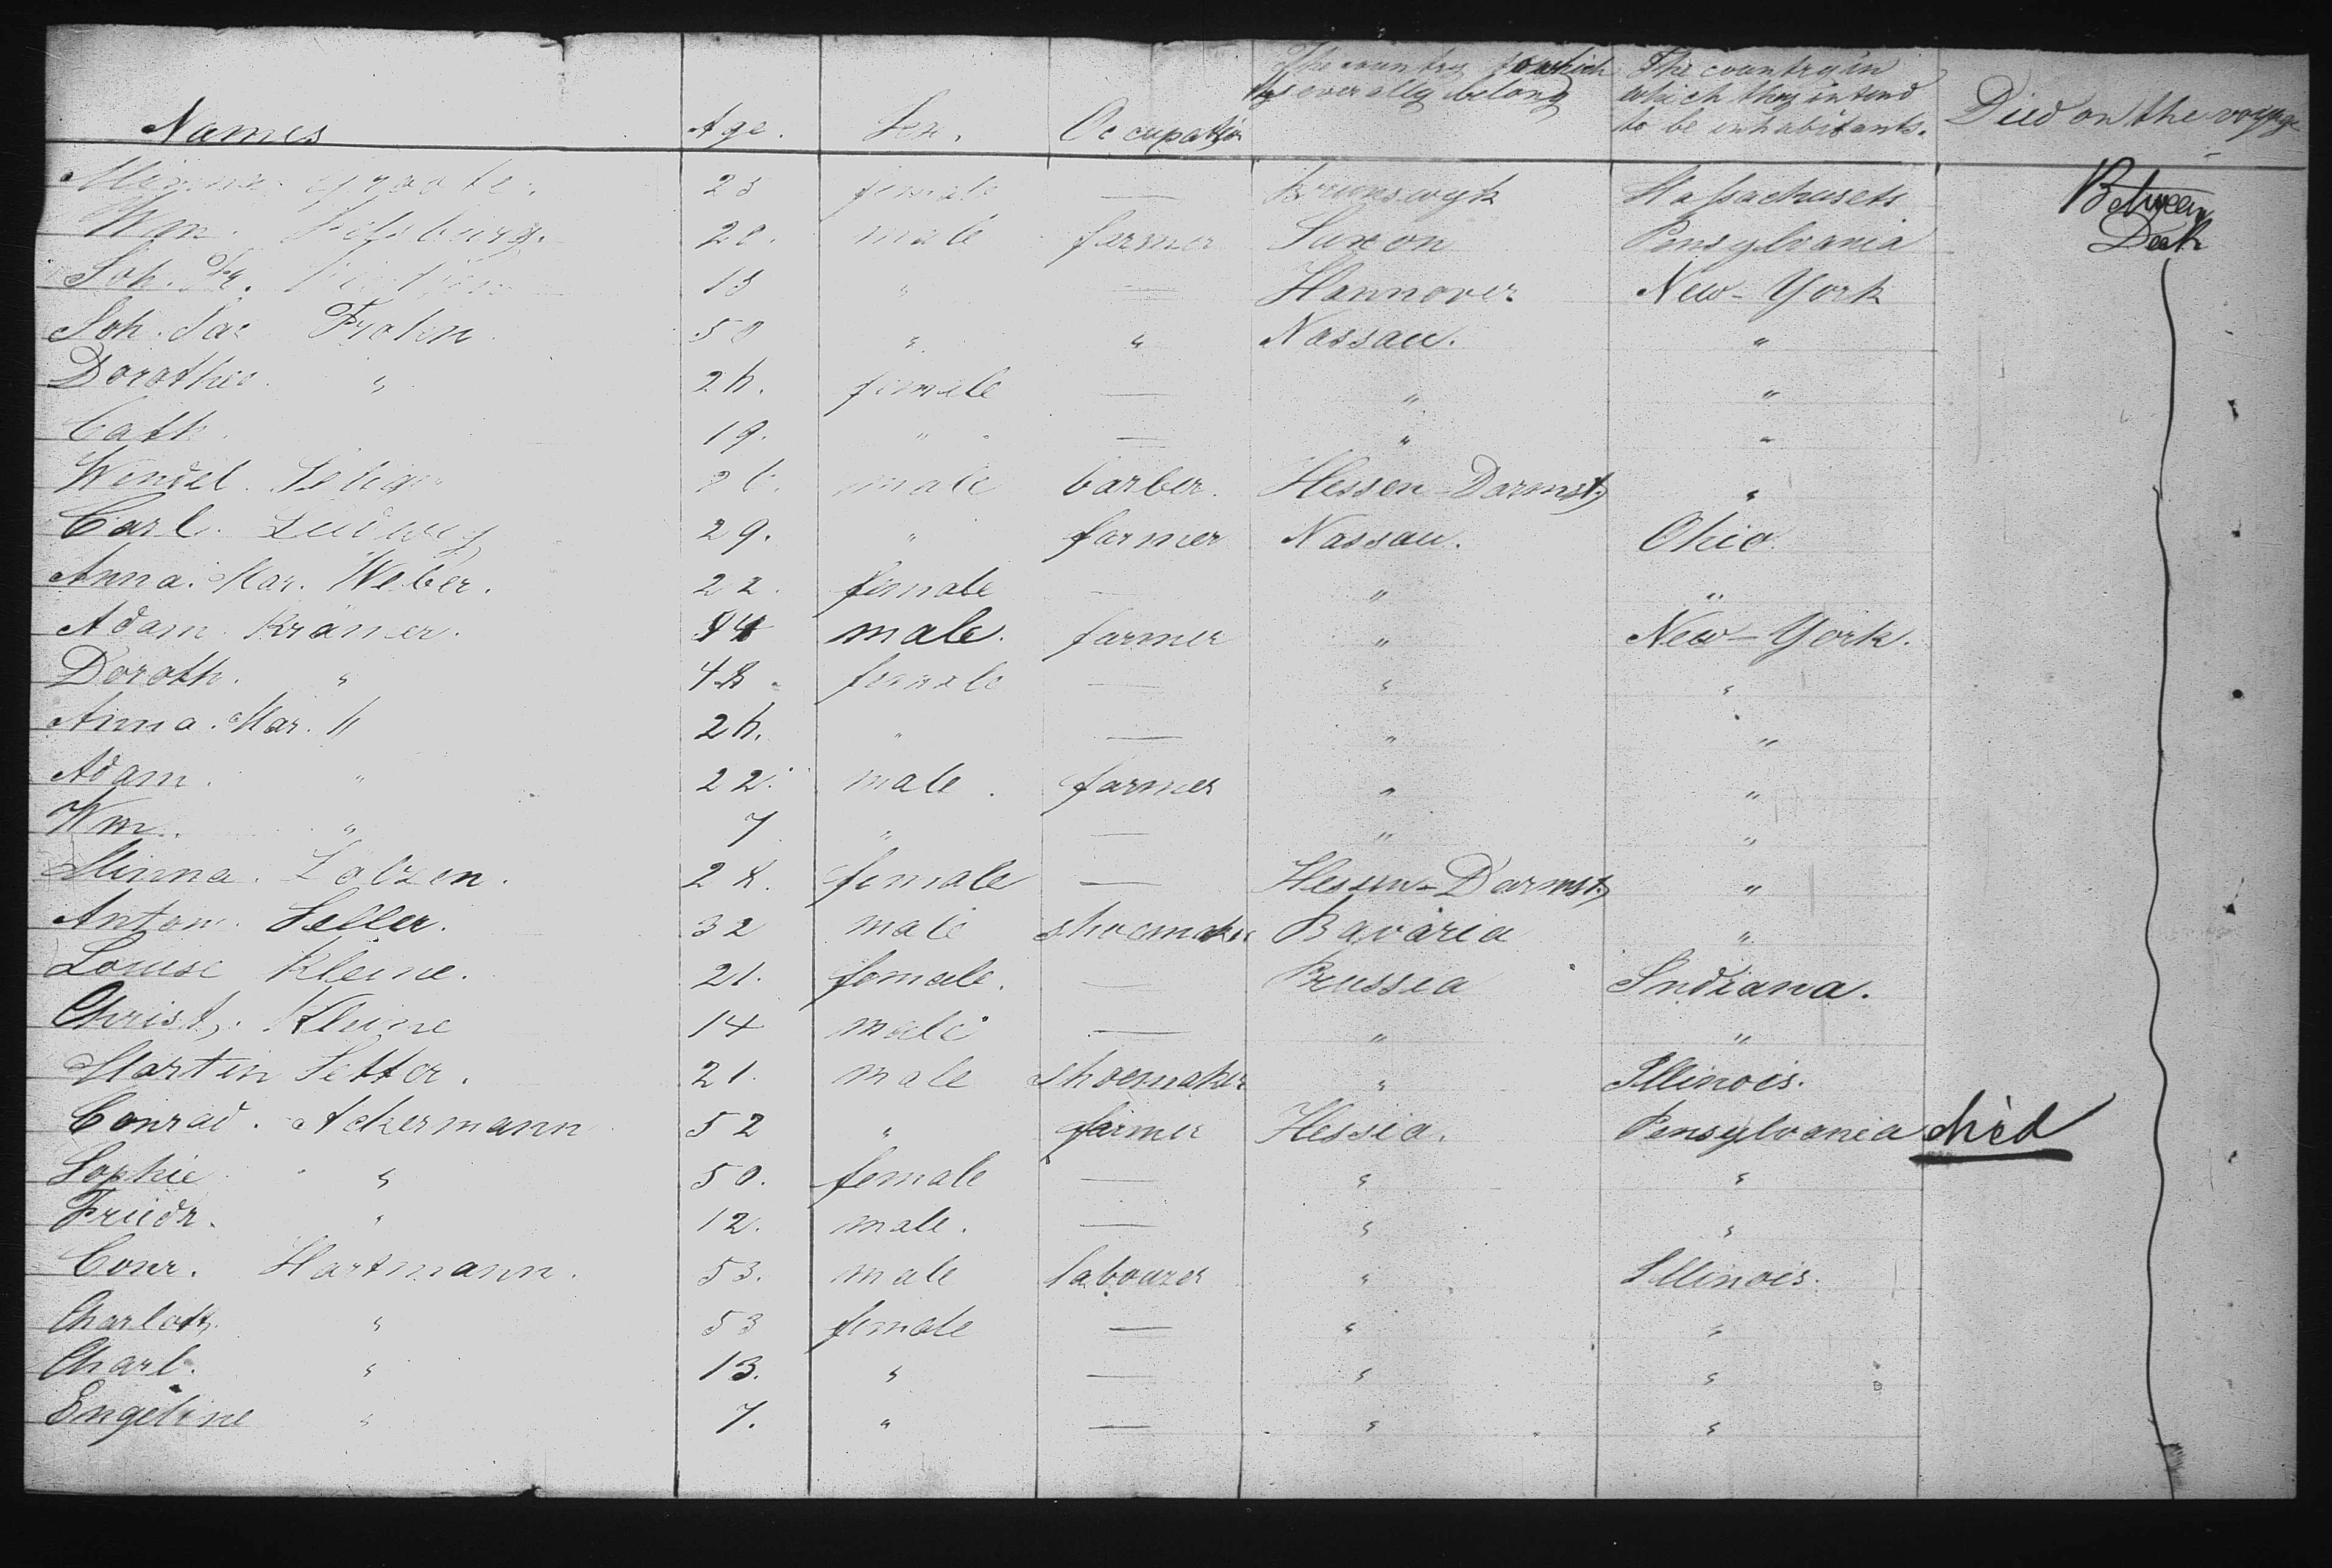 Names Age. Sex. Occupation The country to which they severally belong The country in which they intend to be inhabitants. Died on the voyage
23 female — Brunswyk Massachusets Between
Wm. male farmer Saxon Pensylvania Deck
Joh. Fr. 13 " — Hannover New-York
Joh. Jac Frohn 50 " " Nassau. "
Dorothea " 2h. female — " "
Cath. 19. " — " "
Wendel. male barber. Hessen-Darmst. "
Carl. Ludwig 29. " farmer Nassau. Ohio.
Anna. Mar. Weber. 22. female " "
Adam. Krämer. 44 male. farmer " New-York.
Doroth. " 48. female — " "
Anna. Mar. " 2h. " — " "
Adam. " 22. male. farmer " "
Wm. " 7 " — " "
Minna. Lotzen. 28. female — Hessen-Darmst. "
Anton. Seller. 32 male shoemaker Bavaria "
Louise Kleine. 21. female. — Prussia Indiana.
Christ. Kleine 14 male — " "
Martin Setter. 21. male shoemaker " Illinois.
Conrad. Ackermann 52 " farmer Hessia. Pensylvania died
Sophie " 50. female — " "
Friedr. " 12. male. — " "
Conr. Hartmann. 53. male labourer " Illinois.
Charlott. " 53 female — " "
Charl. " 13. " — " "
Engeline " 7. " — " "